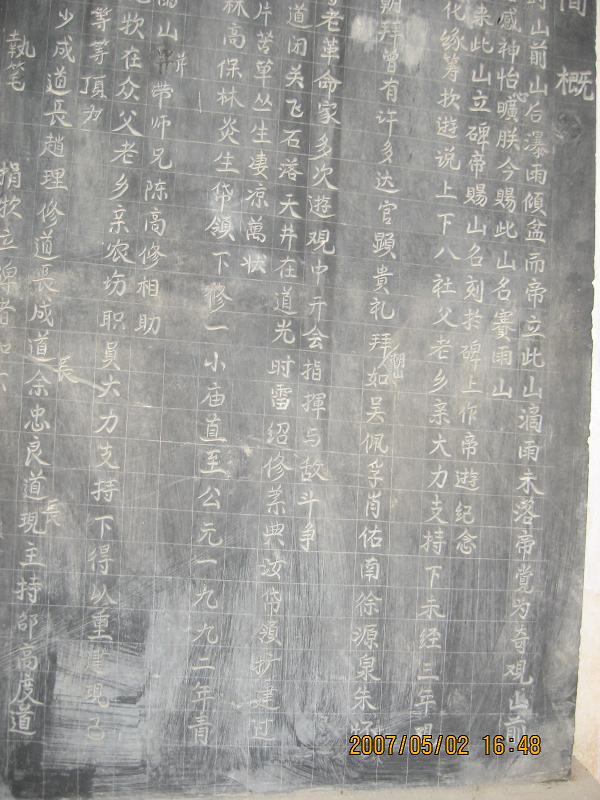 简概
到山前山后瀑雨倾盆而帝立此山滴雨未落帝觉为奇观山前
感神怡心旷朕今赐此山名赛雨山
来此山立碑帝赐山名刻於碑上作帝遊纪念
化缘筹款遊说上下八社父老乡亲大力支持下未经三年
朝拜曾有许多达官顕貴礼拜朝山如吴佩孚肖佑南徐源泉朱
老革命家多次遊观中开会指挥与敌斗争
道闭关飞石落天井在道光时雷绍修業典汝岱領扩建过
片苦草丛生凄凉萬状
林高保林炎生岱領下修一小庙直至公元一九九二年青
山 带师兄陈高修相助
款在众父老乡亲农坊职員大力支持下得以重建现己
等等頂为
少成道長趙理修道長成道長余忠良道長現主持邰高度道
執笔
捐款立碑者如下
2007/05/02 16:48